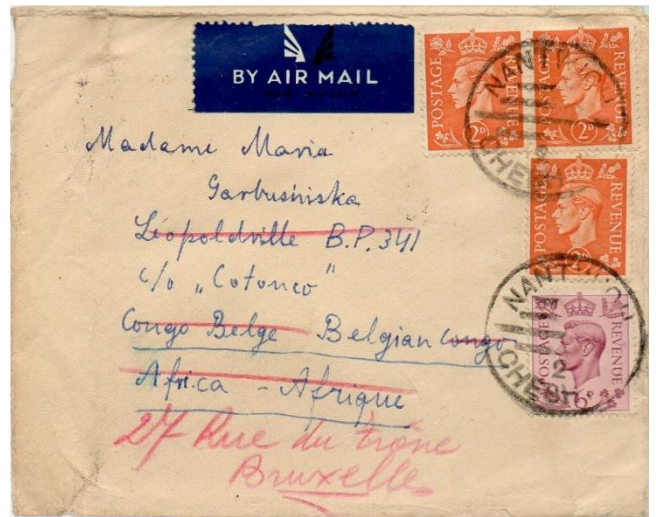 BY AIR MAIL
PAR AVION
POSTAGE REVENUE 2D
POSTAGE REVENUE 2D
POSTAGE REVENUE 2D
POSTAGE REVENUE 6D
NANTWICH
CHESH
NANTWICH
2
CHESH
Madame Maria
Garbusińska
Léopoldville B.P. 341
c/o „Cotonco"
Congo Belge Belgian Congo
Africa - Afrique
27 Rue du Trône
Bruxelle